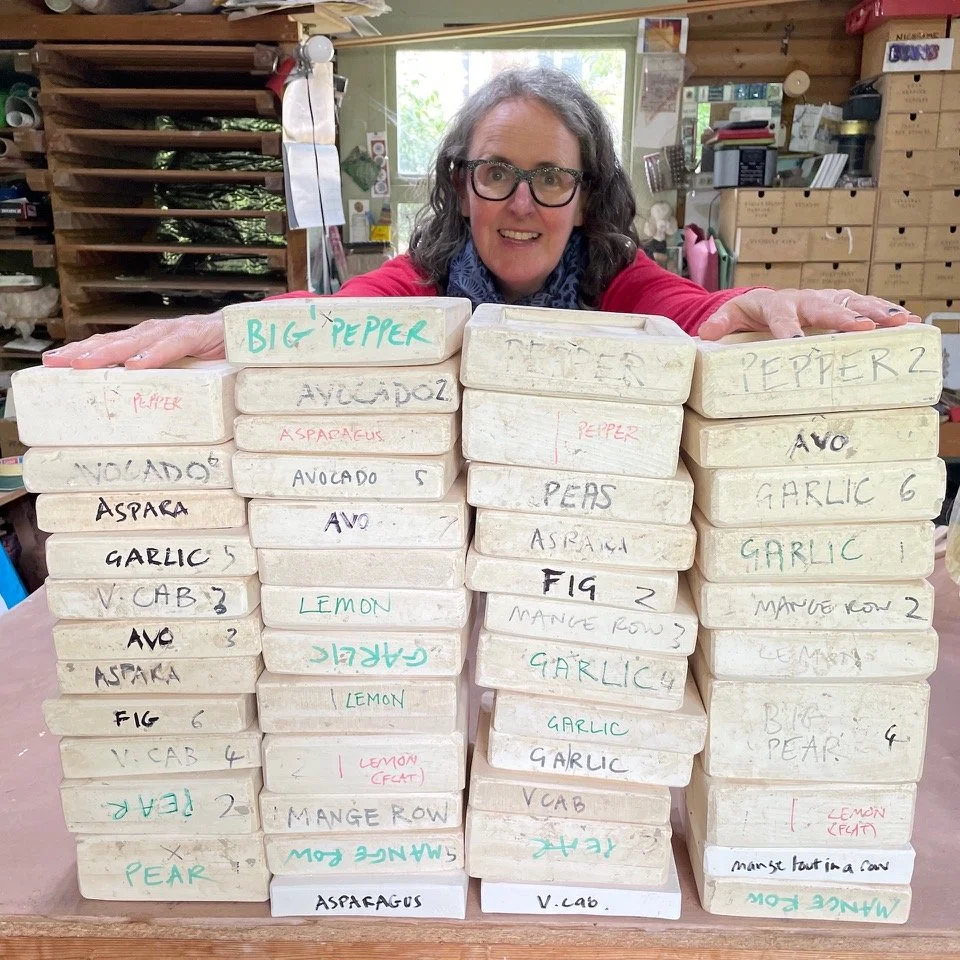 PEPPER
AVOCADO 6
ASPARA
GARLIC 5
V. CAB 3
AVO 3
ASPARA
FIG 6
V. CAB 4
PEAR 2
PEAR
BIG PEPPER
AVOCADO 2
ASPARAGUS
AVOCADO 5
AVO 7
LEMON
GARLIC
1 LEMON
1 LEMON
(FLAT)
MANGE ROW
MANGE ROW 5
ASPARAGUS
PEPPER
PEPPER
PEAS
ASPARA
FIG 2
MANGE ROW 3
GARLIC 4
GARLIC
GARLIC
V CAB
PEAR 3
V. Cab.
PEPPER 2
AVO
GARLIC 6
GARLIC 1
MANGE ROW 2
LEMON
BIG
PEAR 4
LEMON
(FLAT)
mange tout in a row
MANGE ROW